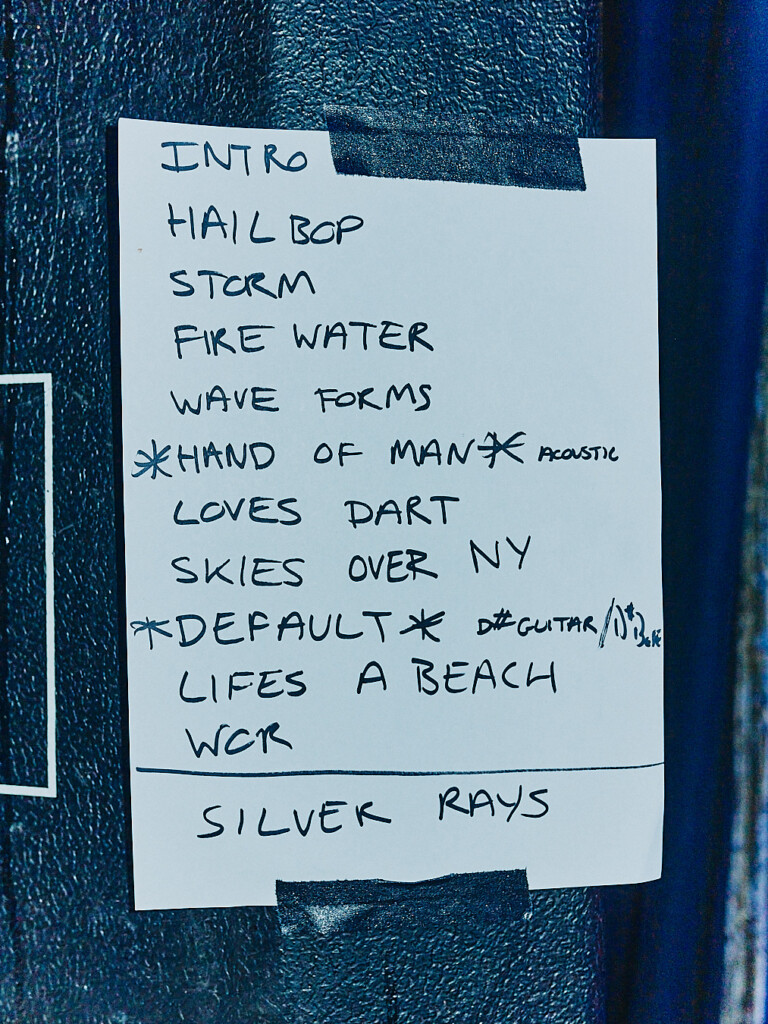 INTRO
HAIL BOP
STORM
FIRE WATER
WAVE FORMS
*HAND OF MAN* ACOUSTIC
LOVES DART
SKIES OVER NY
*DEFAULT* D# GUITAR/D#
LIFES A BEACH
WOR
SILVER RAYS